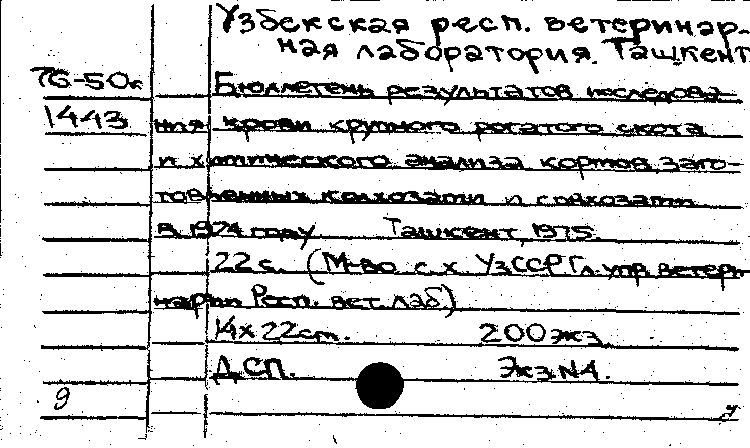 Узбекская респ. ветеринар-
ная лаборатория. Ташкент
76-50к Бюллетень результатов исследова-
1443 ния крови крупного рогатого скота
и химического анализа кормов, заго-
товленных колхозами и совхозами
в 1974 году Ташкент, 1975.
22 с. (М-во с.х УзССР Гл. упр. ветери-
нарии Респ. вет. лаб)
14х22 см. 200 экз.
ДСП. Экз. N4.
9